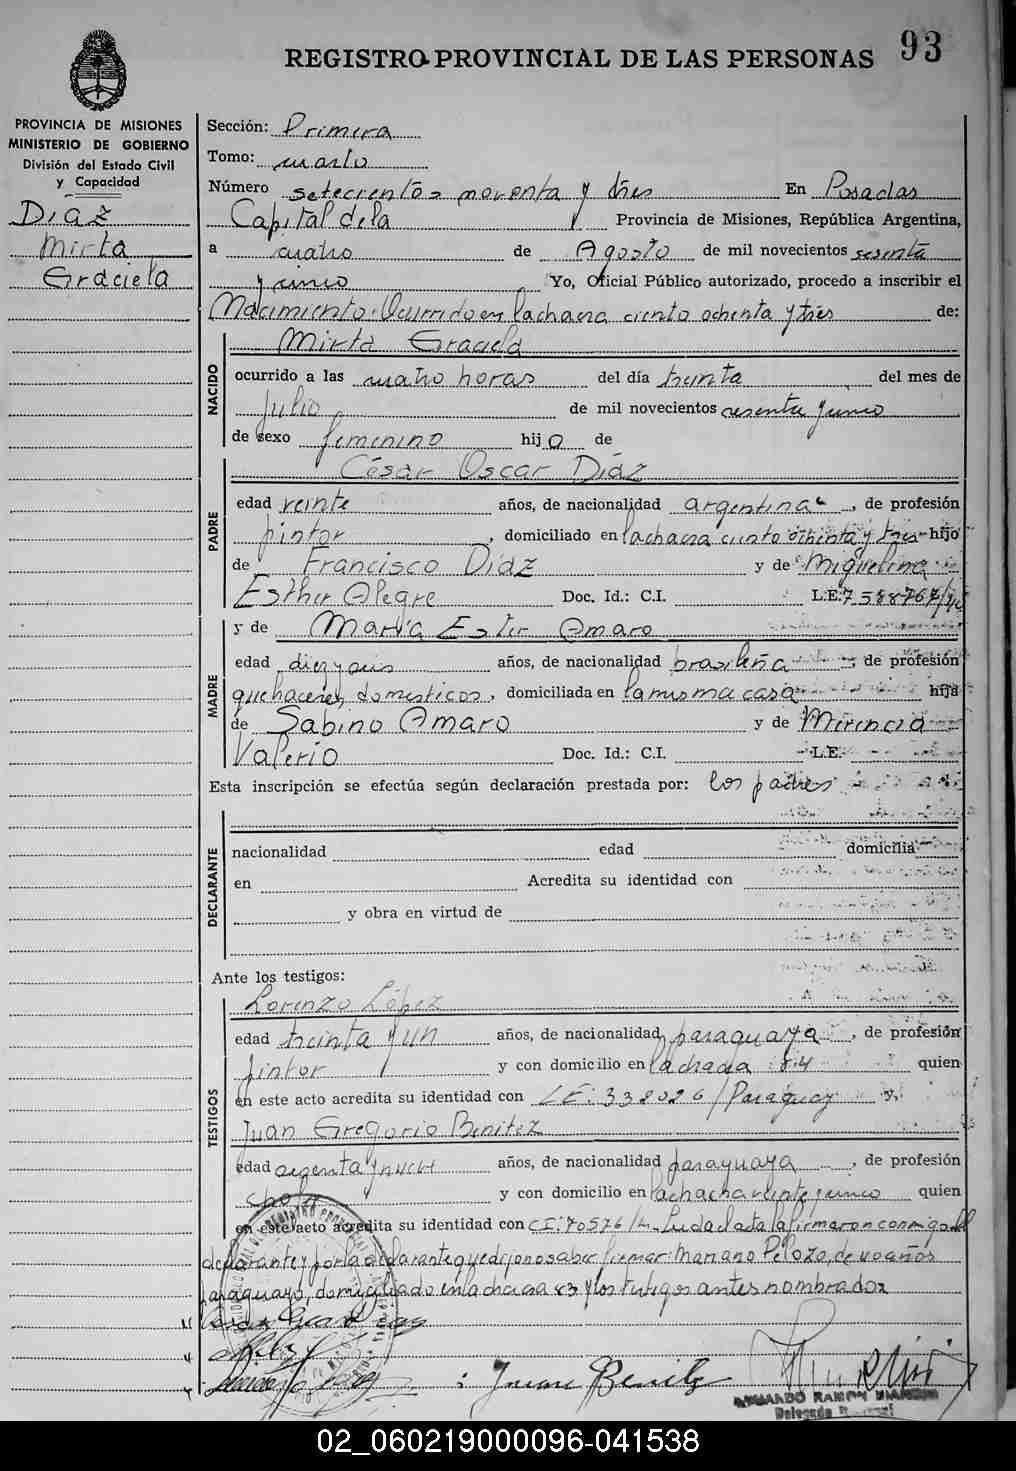 93
REGISTRO PROVINCIAL DE LAS PERSONAS
PROVINCIA DE MISIONES
MINISTERIO DE GOBIERNO
División del Estado Civil
y Capacidad
Díaz
Mirta
Graciela
Sección: Primera
Tomo: cuarto
Número setecientos noventa y tres En Posadas
Capital de la Provincia de Misiones, República Argentina,
a cuatro de Agosto de mil novecientos sesenta
y cinco Yo, Oficial Público autorizado, procedo a inscribir el
Nacimiento Ocurrido en la chacra ciento ochenta y tres de:
NACIDO
Mirta Graciela
ocurrido a las cuatro horas del día treinta del mes de
Julio de mil novecientos sesenta y cinco
de sexo femenino hija de
PADRE
César Oscar Díaz
edad veinte años, de nacionalidad argentina, de profesión
pintor, domiciliado en la chacra ciento ochenta y tres hijo
de Francisco Díaz y de Miguelina
Esther Alegre Doc. Id.: C.I. L.E. 7588767
MADRE
y de María Ester Amaro
edad diez y seis años, de nacionalidad brasileña, de profesión
quehaceres domésticos, domiciliada en la misma casa hija
de Sabino Amaro y de
Valerio Doc. Id.: C.I. L.E.
Esta inscripción se efectúa según declaración prestada por: los padres
DECLARANTE
nacionalidad edad domicilia
en Acredita su identidad con
y obra en virtud de
Ante los testigos:
TESTIGOS
Lorenzo López
edad treinta y un años, de nacionalidad paraguaya, de profesión
pintor y con domicilio en la chacra 84 quien
en este acto acredita su identidad con LE: 338026/Paraguay y,
Juan Gregorio Benitez
edad y nueve años, de nacionalidad paraguaya, de profesión
chofer y con domicilio en la chacra veinte y cinco quien
en este acto acredita su identidad con C.I: 70576 Leída el acta la firmaron conmigo el
declarante y por la declarante que dijo no saber firmar: Mariano Pelozo, de años
paraguayo, domiciliado en la chacra 83 y los testigos antes nombrados
Cesar Oscar Diaz
Juan Benitez
ARMANDO RAMON
Delegado
02_060219000096-041538